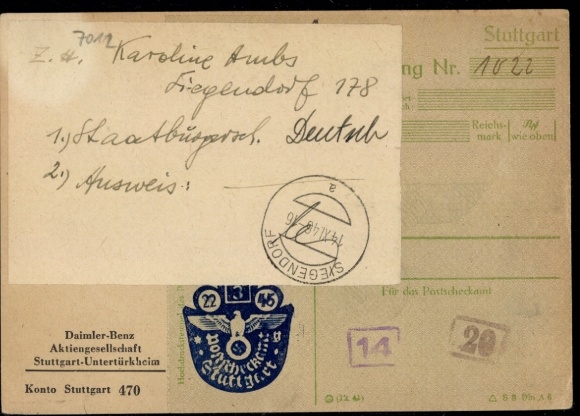 Z. H. 7012 Karoline Ambs
Siegendorf 178
1.) Staatbürgersch. Deutsch
2.) Ausweis:
SIEGENDORF
a
14.XI.48-16
Stuttgart
Nr. 1022
Reichs-
mark
wie oben
Für das Postscheckamt
22 3 45
Postscheckamt
Stuttgart
14
20
Daimler-Benz
Aktiengesellschaft
Stuttgart-Untertürkheim
Konto Stuttgart 470